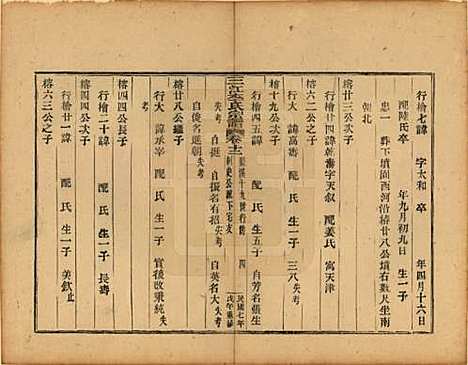 行檜七諱 字太和 卒 年四月十六日
配陸氏卒 年九月初九日 生一子
忠一 葬下壩周西河沿樁廿八公墳右數人坐南
朝北
榕四公次子
行檜廿四諱乾壽字天叙 配姜氏 寓天津
榕六二公之子
行大 諱高壽 配 氏 生一子 三八失考
榕十九公次子
行檜四五諱 配 氏 生五子 自芳名張生
失考 自挺 自振名有招失考 自英名大失考
自俊名進朝失考
榕廿八公繼子
行大 諱承宰 配 氏 生一子 實後改秉統失
考
榕四四公長子
行檜二十諱 配 氏 生一子 長壽
榕六三公之子
行檜廿一諱 配 氏 生一子 美欽止
三江李氏宗譜 卷十二
民國七年
戊午重修